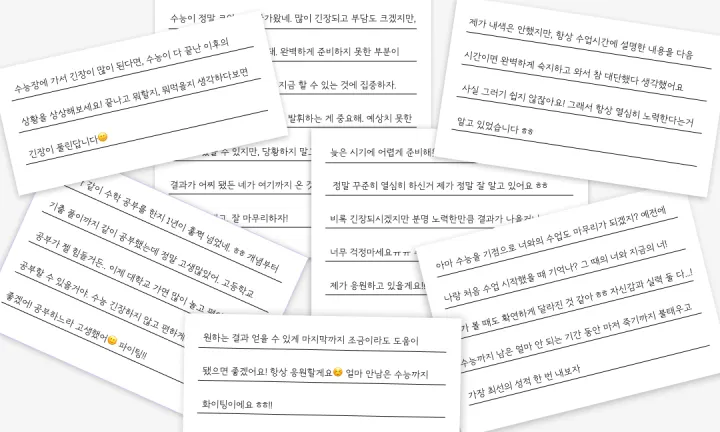 수능장에 가서 긴장이 많이 된다면, 수능이 다 끝난 이후의
상황을 상상해보세요! 끝나고 뭐할지, 뭐먹을지 생각하다보면
긴장이 풀린답니다😊
수능이 정말
다가왔네. 많이 긴장되고 부담도 크겠지만,
완벽하게 준비하지 못한 부분이
지금 할 수 있는 것에 집중하자.
발휘하는 게 중요해. 예상치 못한
수 있지만, 당황하지 말고
결과가 어찌 됐든 네가 여기까지 온 것
잘 마무리하자!
제가 내색은 안했지만, 항상 수업시간에 설명한 내용을 다음
시간이면 완벽하게 숙지하고 와서 참 대단했다 생각했어요
사실 그러기 쉽지 않잖아요! 그래서 항상 열심히 노력한다는거
알고 있었습니다 ㅎㅎ
늦은 시기에 어렵게 준비해
정말 꾸준히 열심히 하신거 제가 정말 잘 알고있어요 ㅎㅎ
비록 긴장되시겠지만 분명 노력한만큼 결과가
너무 걱정마세요ㅠㅠ
제가 응원하고 있을게요!
같이 수학 공부를 한지 1년이 훌쩍 넘었네. ㅎㅎ 개념부터
기출 풀이까지 같이 공부했는데 정말 고생많았어. 고등학교
공부가 젤 힘들거든.. 이제 대학교 가면 많이 놀고
공부할 수 있을거야. 수능 긴장하지 않고 편하게
좋겠어! 공부하느라 고생했어😊 파이팅!!
원하는 결과 얻을 수 있게 마지막까지 조금이라도 도움이
됐으면 좋겠어요! 항상 응원할게요😊 얼마 안남은 수능까지
화이팅이에요 ㅎㅎ!!
아마 수능을 기점으로 너와의 수업도 마무리가 되겠지? 예전에
나랑 처음 수업 시작했을 때 기억나? 그 때의 너와 지금의 너!
가 볼 때도 확연하게 달라진 것 같아 ㅎㅎ 자신감과 실력 둘 다..!
수능까지 남은 얼마 안 되는 기간 동안 마저 죽기까지 불태우고
가장 최선의 성적 한 번 내보자